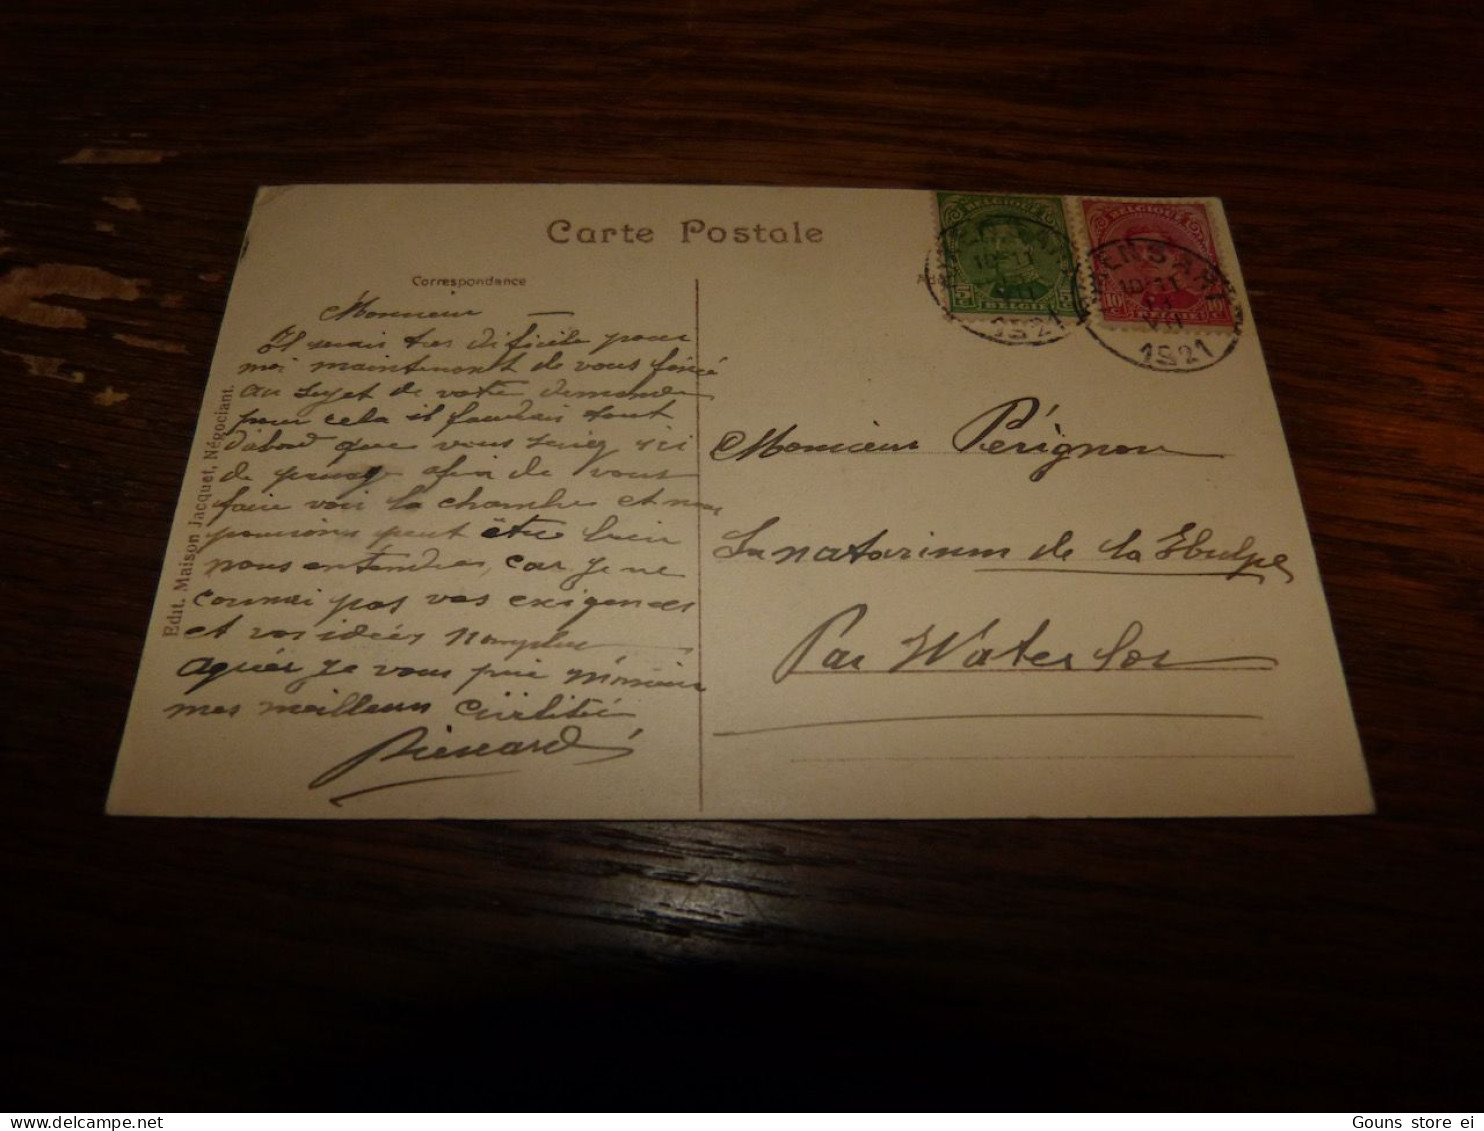 Carte Postale
Correspondance
BELGIQUE
5 C BELGIË 5 C
BELGIQUE
10 C BELGIË 10 C
RIXENSART
10-11
VII
1921
RIXENSART
10-11
VII
1921
Monsieur
Il serais tres dificile pour
moi maintenant de vous fixé
au sujet de votre demande
pour cela il faudrais tout
dabord que vous veniez ici
de passage afin de vous
faire voir la chambre et nous
pourions peut être bien
nous entendres, car je ne
connai pas vos exigences
et vos idées N'ayez plus
agréér je vous prie Monsieur
mes meilleurs civilitée
Monsieur Pérignon
Sanatorium de la Hulpe
Par Waterloo
Edit. Maison Jacquet, Négociant.
Gouns store ei